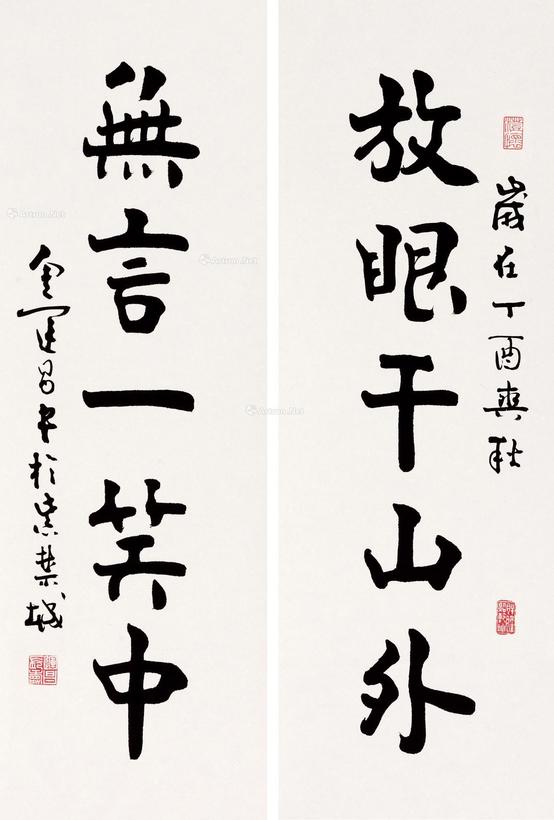 歲在丁酉爽秋
放眼千山外
無言一笑中
金運昌書於紫禁城
Artron.Net
Artron.Net
Artron.Net